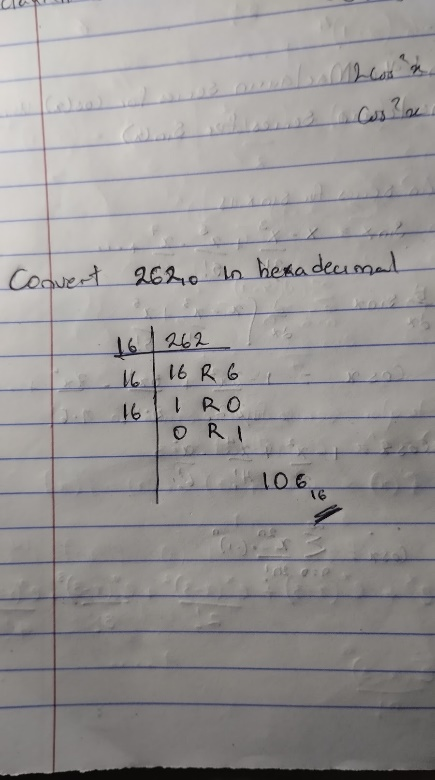 2cos²x
cos²x
Convert 262₁₀ in hexadecimal
16 | 262
16 | 16 R 6
16 | 1 R 0
0 R 1
106₁₆